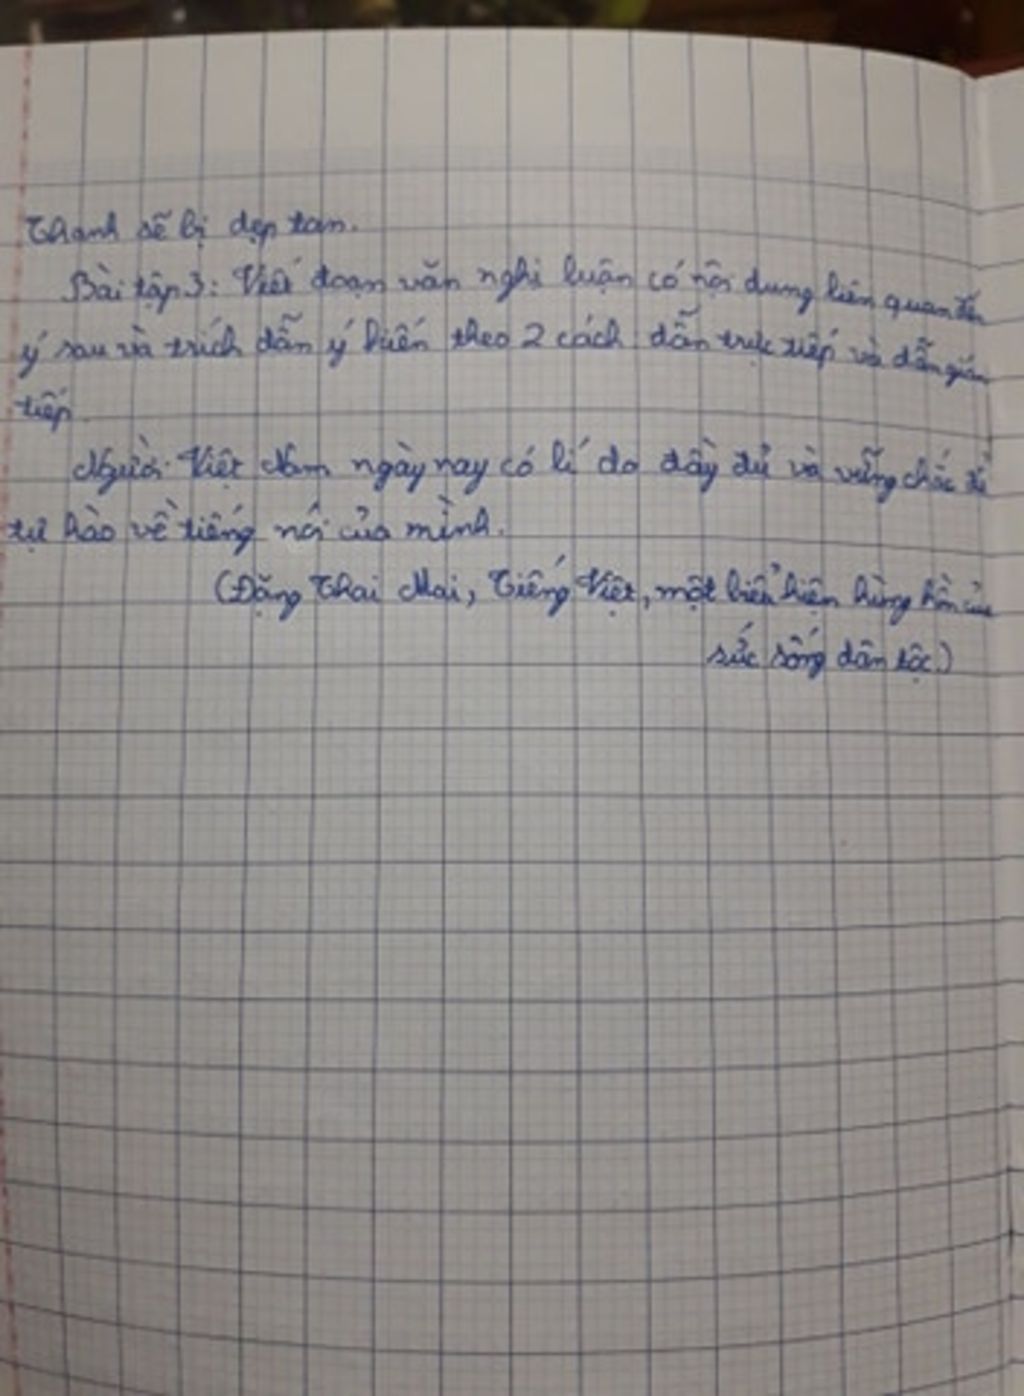 Thanh sẽ bị dẹp tan.
Bài tập 3: Viết đoạn văn nghị luận có nội dung liên quan đến
ý sau và trích dẫn ý kiến theo 2 cách: dẫn trực tiếp và dẫn gián
tiếp.
Người Việt Nam ngày nay có lí do đầy đủ và vững chắc để
tự hào về tiếng nói của mình.
(Đặng Thai Mai, Tiếng Việt, một biểu hiện hùng hồn của
sức sống dân tộc.)